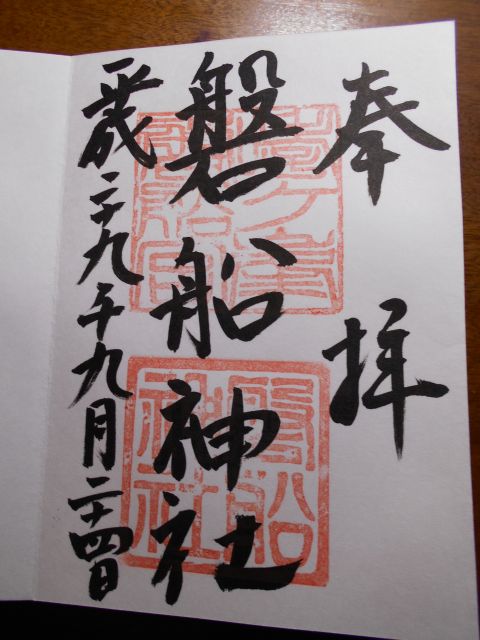 奉拝
磐船神社
平成二十九年九月二十四日
磐船神社